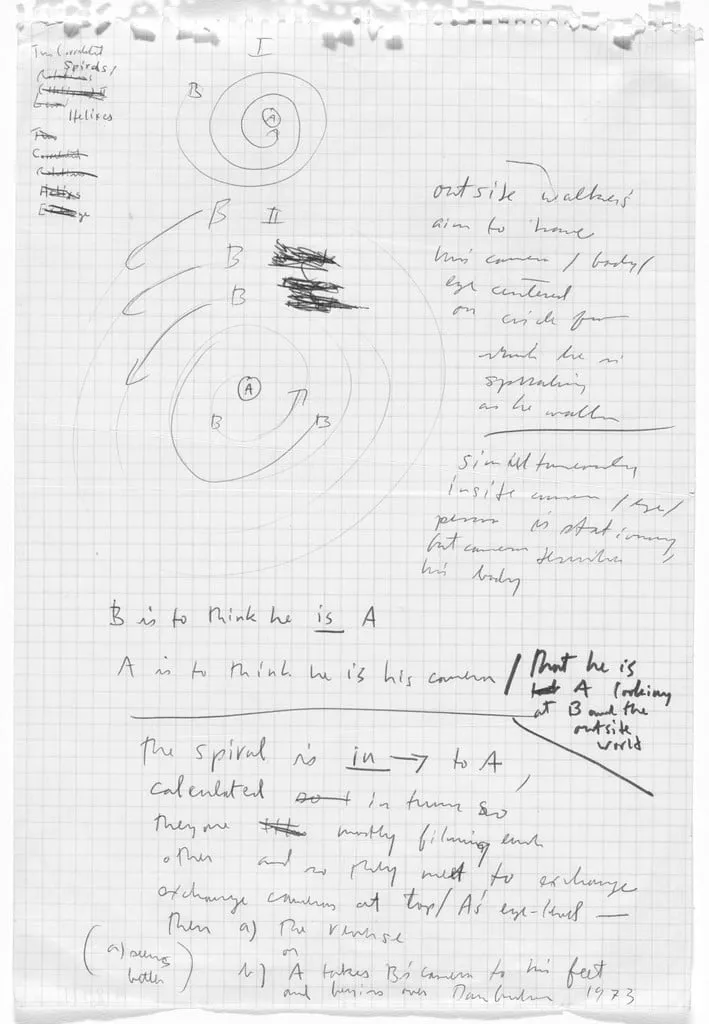 Two Correlated
Spirals/
Rotations
Helixes
Two
Correlated
Rotations
Helixes
I
B
A
B II
B
B
A
B B
outside walker's
aim to have
his camera / body /
eye centered
on circle from
which he is
spiraling
as he walks
simultaneously
inside camera / eye /
person is stationary
but camera describes
his body
B is to think he is A
A is to think he is his camera / that he is
A looking
at B and the
outside
world
the spiral is in → to A,
calculated so in turns so
they are mostly filming each
other and so they meet, to exchange
exchange cameras at top / A's eye-level —
then a) the reverse
or
(a) seems
better)
b) A takes B's camera to his feet
and begins over Dan Graham 1973